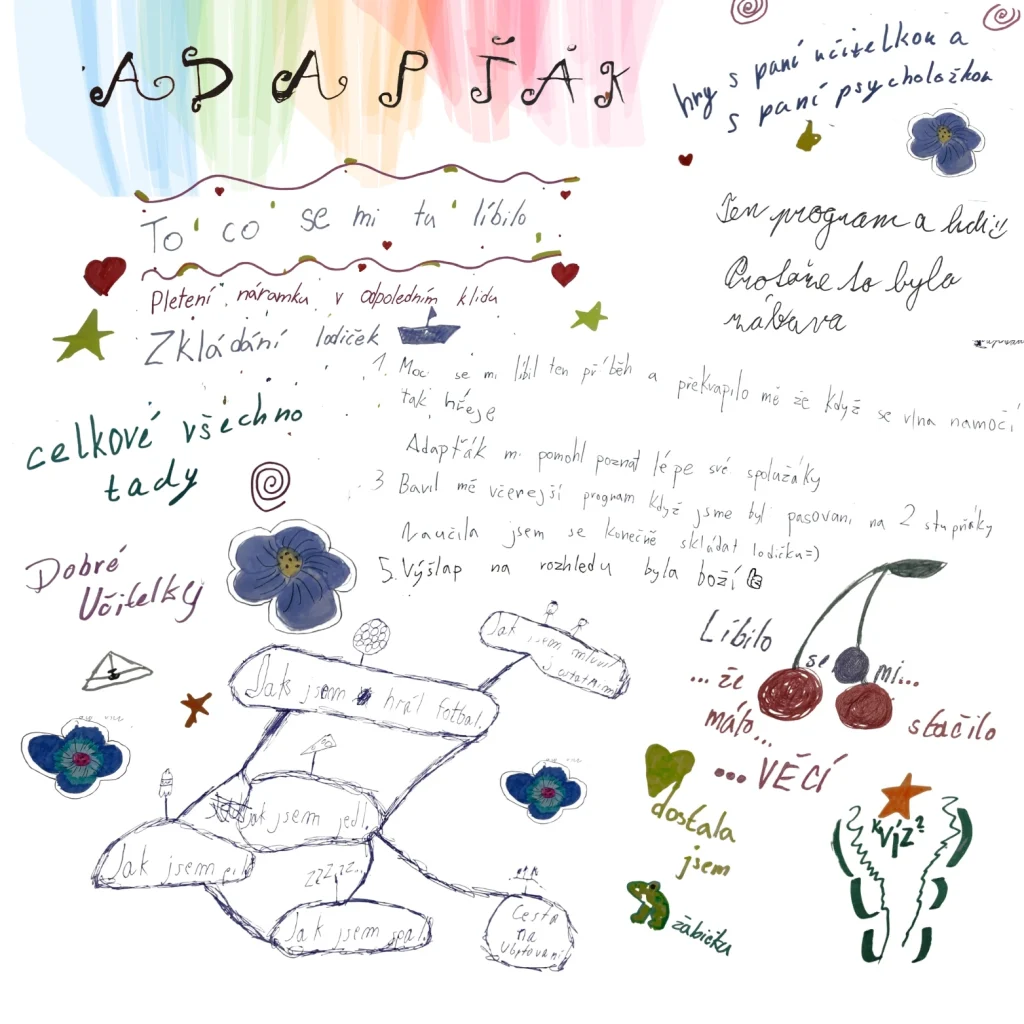 ADAPŤÁK
hry s paní učitelkou a
s paní psycholožkou
To co se mi tu líbilo
Ten program a hdič
Protože to byla
zábava
Pletení náramku v odpoledním klidu
Zkládání lodiček
1. Moc se mi líbil ten příběh a překvapilo mě že když se vlna namočí
tak hřeje
Adapťák mi pomohl poznat lépe své spolužáky
3 Bavil mě včerejší program když jsme byli pasovaní na 2 stupňáky
Naučila jsem se konečně skládat lodičku=)
5. Výšlap na rozhlednu byla boží
celkové všechno
tady
Dobré
Učitelky
Líbilo
se mi...
...že
málo...
stačilo
...VĚCÍ
Jak jsem
Jak jsem hrál fotbal.
Jak jsem jedl.
Jak jsem pil.
zzzzz...
Jak jsem spal.
Cesta
na
ubytovaní
dostala
jsem
žabičku
kvíz?